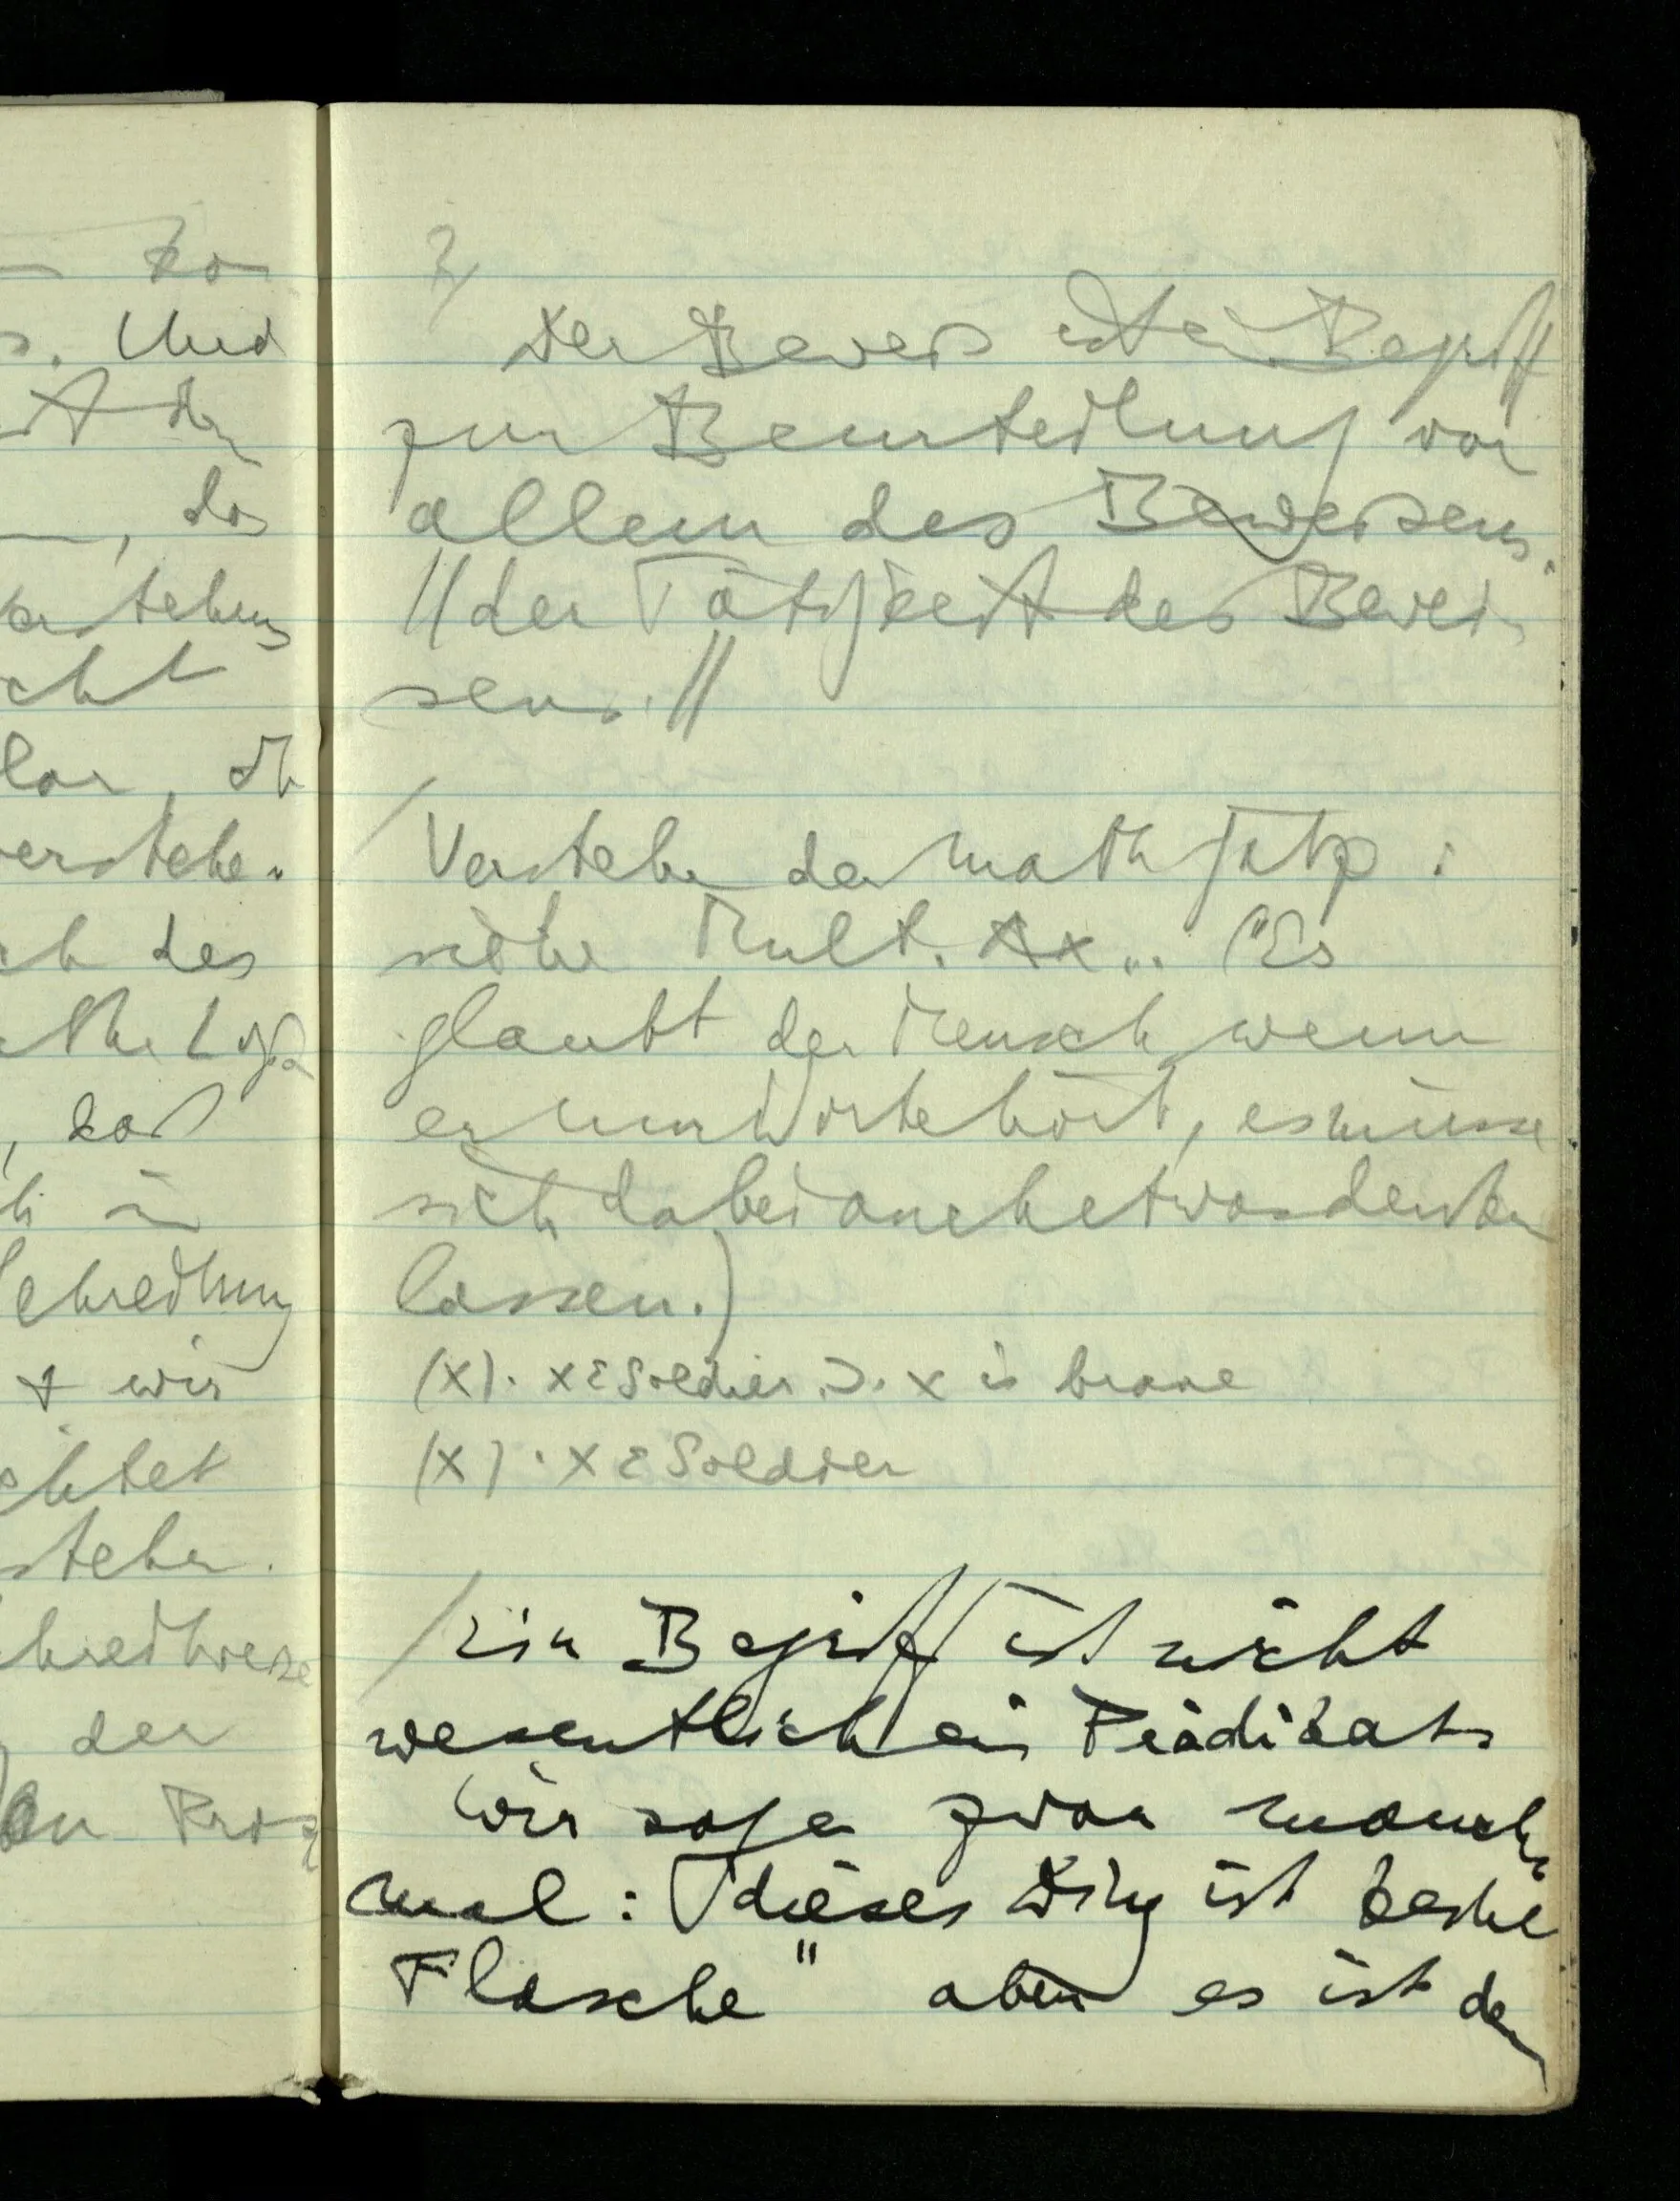 zo
. Und
der
, das
verstehen
cht
lar, ich
verstehe.
ch des
, daß
ch in
wir
chtet
stehen.
der
?/
Der Beweis ist ein Begriff
zur Beurteilung vor
allem des Beweisens.
//der Tätigkeit des Bewei
sens.//
/ Verstehen der math Sätze:
siehe Mult. Ax... ("Es
glaubt der Mensch wenn
er nur Worte hört, es müsse
sich dabei auch etwas denken
lassen.)
(x). x ε Soldier .⊃. x is brave
(x) . x ε Soldier
/ Ein Begriff ist nicht
wesentlich ein Prädikat.
Wir sagen zwar manch
mal: "dieses Ding ist keine
Flasche" aber es ist der